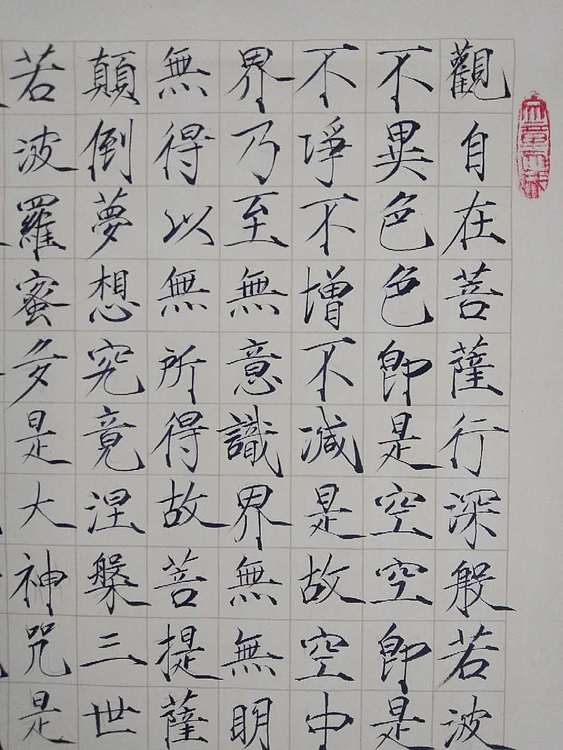 觀自在菩薩行深般若波
不異色色即是空空即是
不淨不增不減是故空中
界乃至無意識界無無明
無得以無所得故菩提薩
顛倒夢想究竟涅槃三世
若波羅蜜多是大神咒是